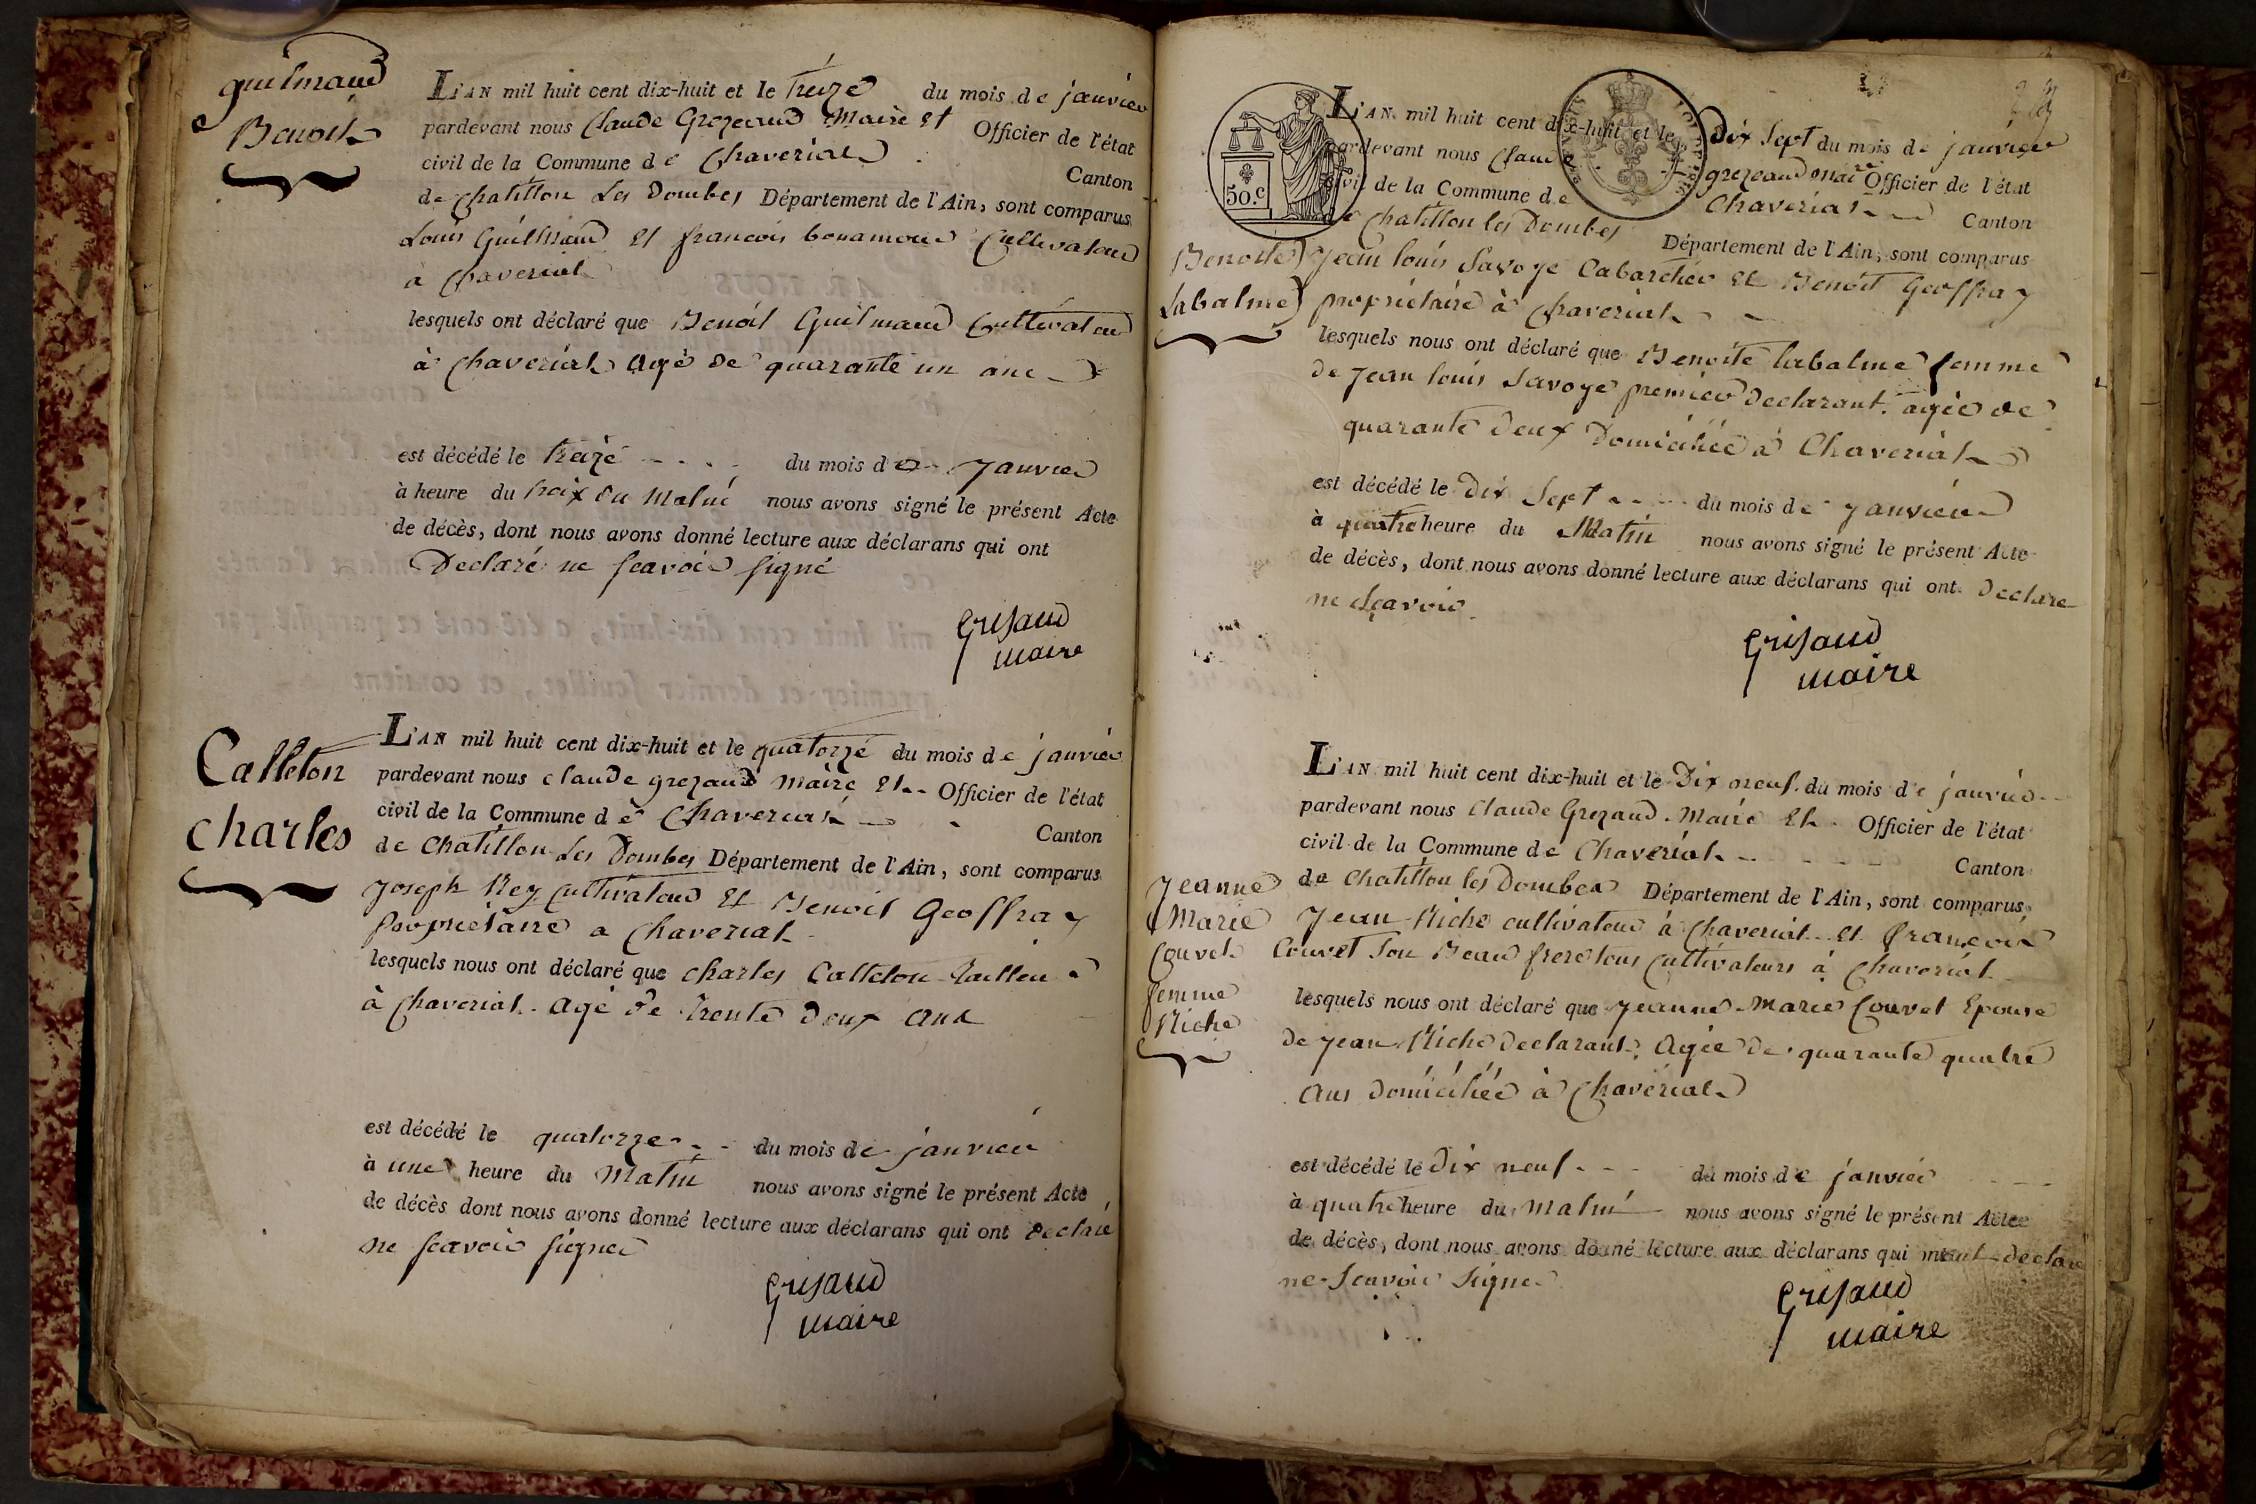 guilmaud
Benoit
L'AN mil huit cent dix-huit et le treize du mois de janvier
pardevant nous Claude Grezeaud Maire et Officier de l'état
civil de la Commune de Chaveriat
Canton
de Chatillon Les Dombes Département de l'Ain, sont comparus
Louis Guilmaud et francois bonamour Cultivateur
à Chaveriat
lesquels ont déclaré que Benoit Guilmaud Cultivateur
à Chaveriat agé de quarante un ans
est décédé le treize du mois de Janvier
à heure du troix du Matin nous avons signé le présent Acte
de décès, dont nous avons donné lecture aux déclarans qui ont
Declaré ne scavoir signé
Grisaud
maire
Calleton
charles
L'AN mil huit cent dix-huit et le quatorze du mois de janvier
pardevant nous claude grezaud maire et Officier de l'état
civil de la Commune de Chaveriat
Canton
de Chatillon Les Dombes Département de l'Ain, sont comparus
Joseph Rey Cultivateur et Benoit Geoffray
propriétaire a Chaveriat
lesquels nous ont déclaré que charles Calleton tailleur
à Chaveriat agé de trente deux ans
est décédé le quatorze du mois de janvier
à une heure du Matin nous avons signé le présent Acte
de décès dont nous avons donné lecture aux déclarans qui ont declaré
ne scavoir signer
Grisaud
maire
50.c
L'AN mil huit cent dix-huit et le Dix Sept du mois de janvier
pardevant nous Claude grezeaud maire Officier de l'état
civil de la Commune de Chaveriat
Canton
de Chatillon les Dombes Département de l'Ain, sont comparus
Benoite
Labalme
Jean louis Savoye Cabaretier et Benoit Geoffray
propriétaire à Chaveriat
lesquels nous ont déclaré que Benoite labalme femme
de Jean louis Savoye premier declarant agée de
quarante deux Domiciliée à Chaveriat
est décédé le dix Sept du mois de janvier
à quatre heure du Matin nous avons signé le présent Acte
de décès, dont nous avons donné lecture aux déclarans qui ont Declare
ne Sçavoir
Grisaud
maire
L'AN mil huit cent dix-huit et le Dix neuf du mois de janvier
pardevant nous Claude Grezaud Maire et Officier de l'état
civil de la Commune de Chaveriat
Canton
de Chatillon les Dombes Département de l'Ain, sont comparus
Jeanne
Marie
Couvet
femme
Riche
Jean Riche cultivateur à Chaveriat et francois
Couvet Son Beau frere tous Cultivateurs à Chaveriat
lesquels nous ont déclaré que Jeanne Marie Couvet Epouse
de Jean Riche declarant, Agée de quarante quatre
ans domiciliée à Chaveriat
est décédé le Dix neuf du mois de janvier
à quatre heure du Matin nous avons signé le présent Acte
de décès, dont nous avons donné lecture aux déclarans qui declaré
ne Scavoir Signer
Grisaud
maire